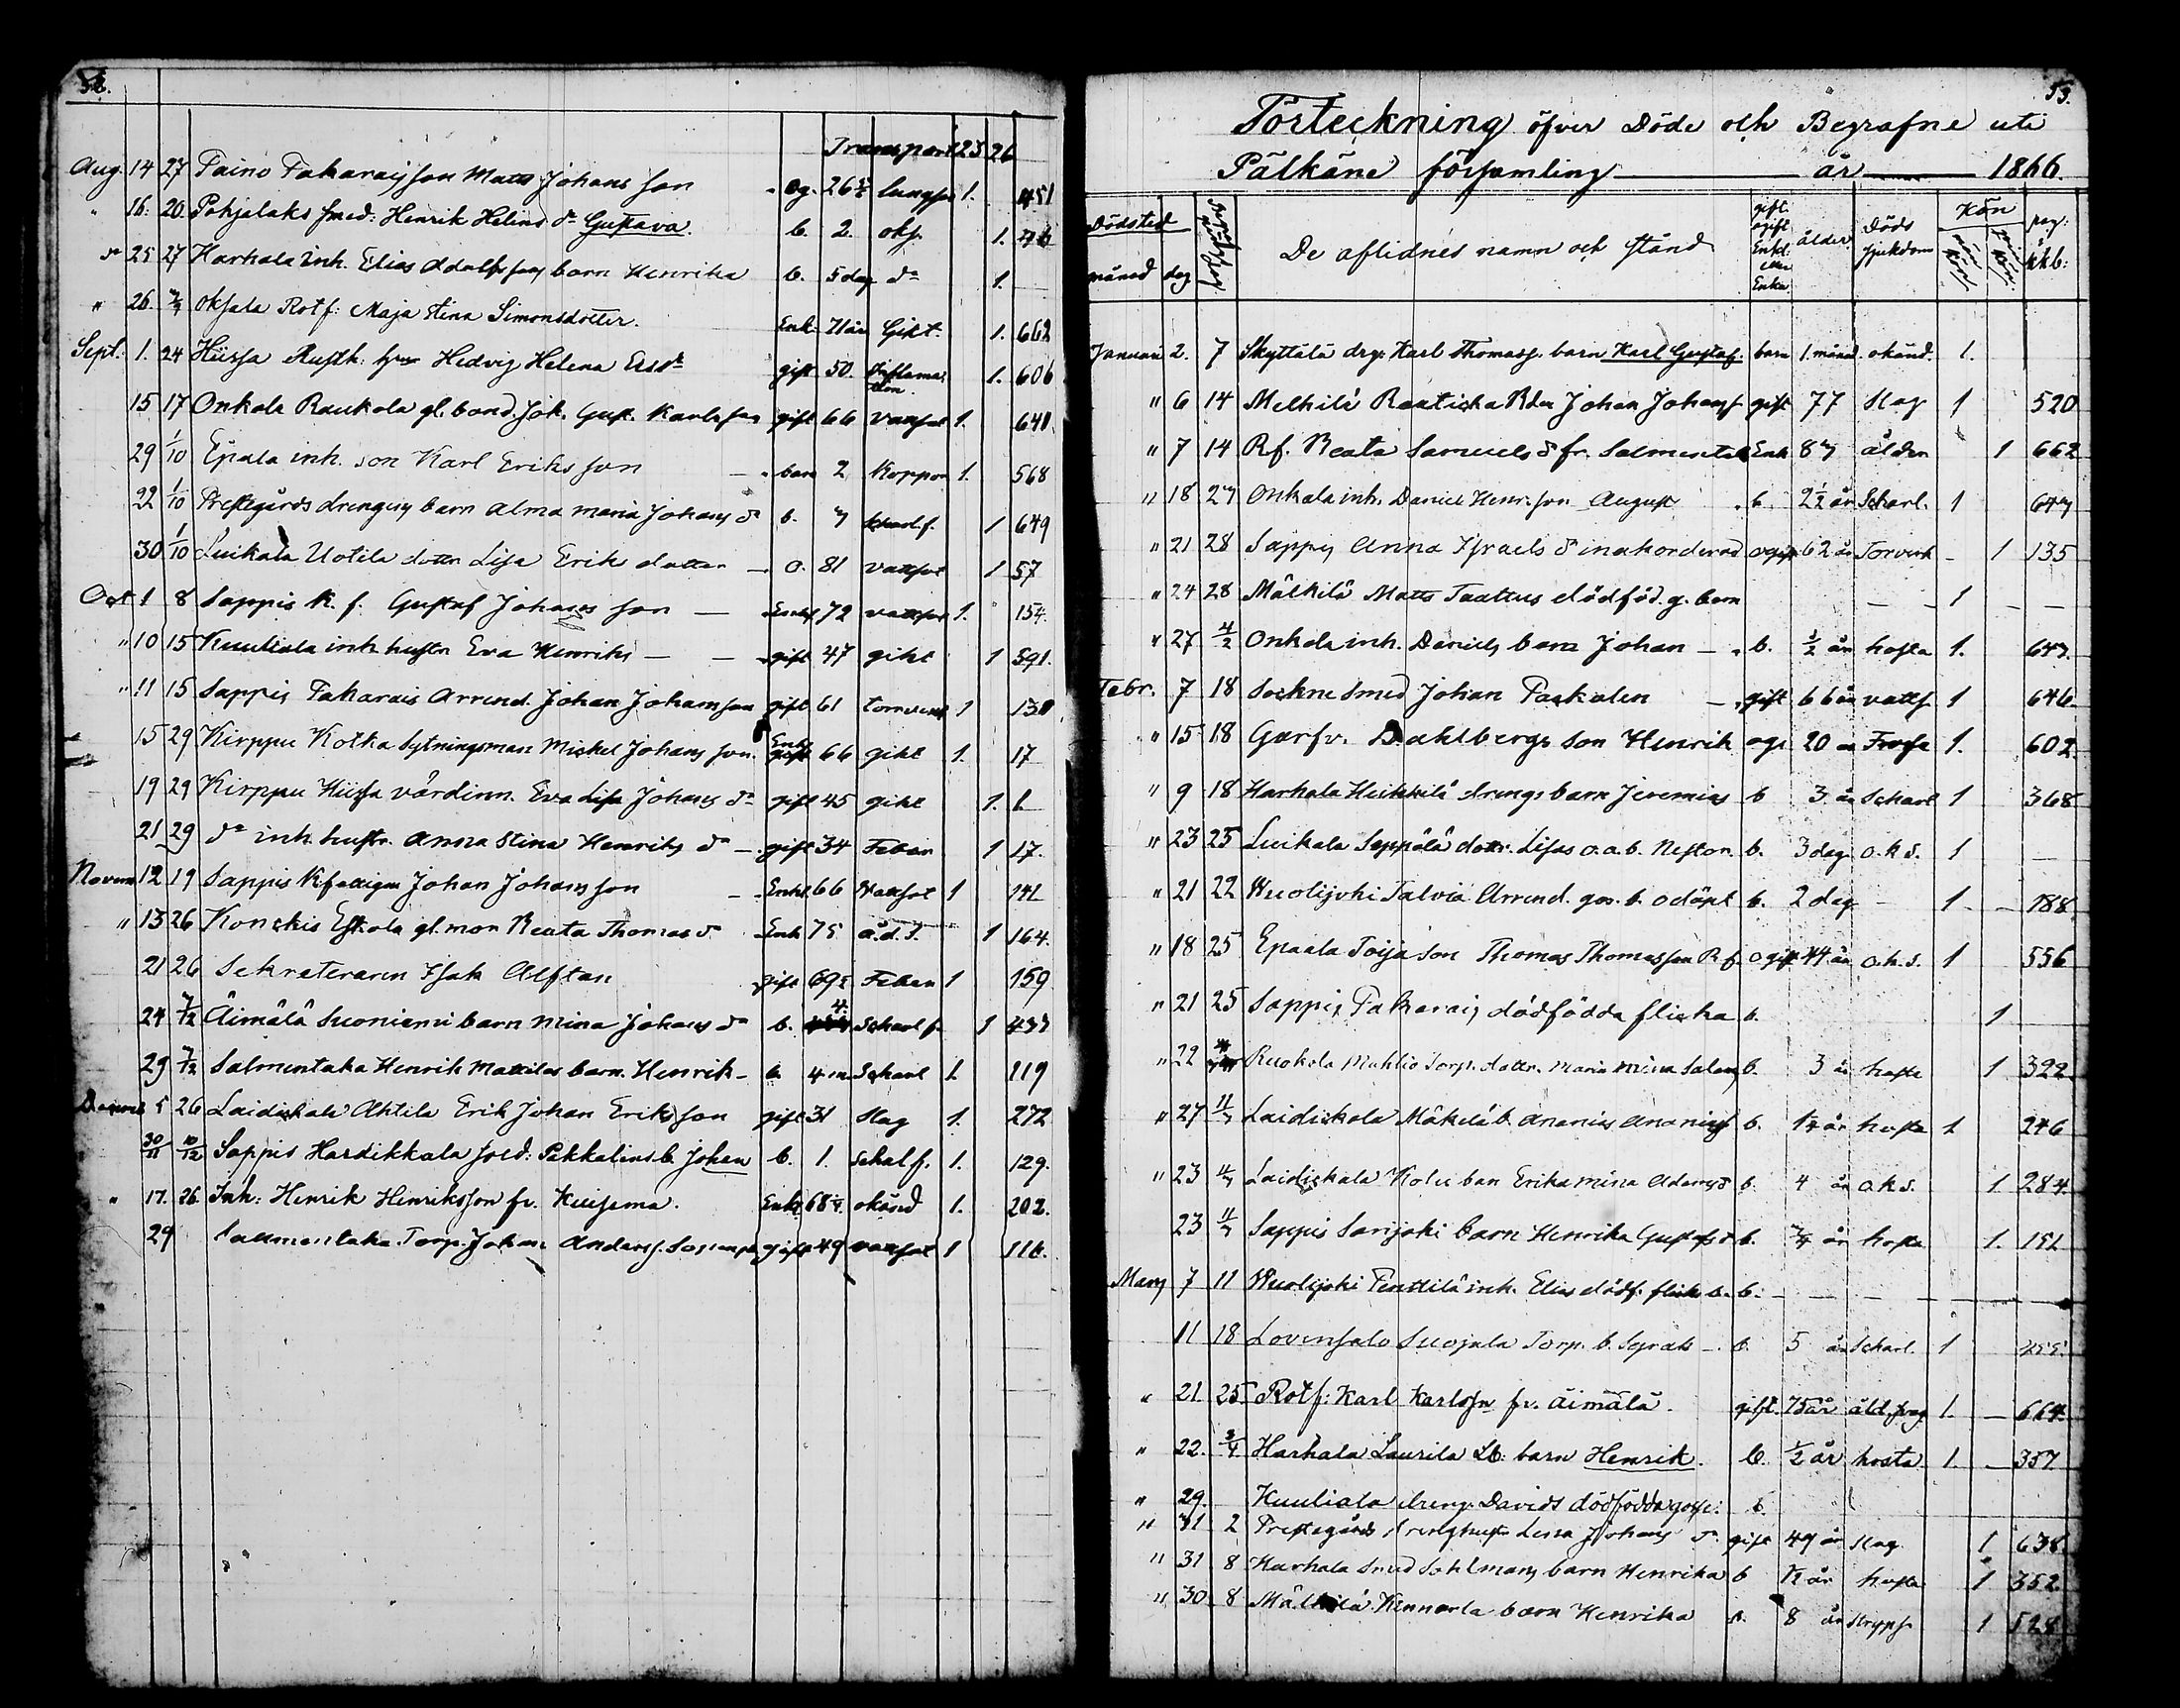 Transport 23 26
Aug. 14 27 Paino Takarais son Matts Johans son og. 26 lungs 1. 451
" 16. 20. Pohjalaks smed: Henrik Helins dr Gustava. b. 2. okj. 1. 
dr 25 27 Harhala inh. Elias Adolfssons barn Henrika b. 5 dag dr 1.
" 26. Oksala Rotf: Maja Stina Simonsdotter. Enk: 71 år Gikt. 1. 662
Sept. 1. 24 Hiissa Rusth. hru Hedvig Helena Ersdr gift 50. Inflama-tion. 1. 606
15 17 Onkala Raukola gl. bond. Joh. Gust. Karlsson gift 66 vattsot 1. 641.
29 1/10 Epaala inh. son Karl Eriksson barn 2 Koppor 1. 568
22 1/10 Prestegårds drengens barn Alma Maria Johans dr b. 7 scharlf. 1 649
30 1/10 Luikala Uotila dottr Lisa Eriksdotter o. 81 vattsot 1 57
Oct 1 8 Sappis R. f. Gustaf Johans son Enkl 72 vattsot 1. 154.
" 10 15 Kuuliala inh. hustr Eva Henriks gift 47 gikt 1 591.
" 11 15 Sappis Takarais Arrend. Johan Johansson gift 61 torrverk 1 130
15 29 Kirppu Kotka Sytningsman Mickel Johans son. Enkl 66 gikt 1. 17
19 29 Kirppu Hiissa värdinn. Eva Lisa Johans dr gift 45 gikt 1. 6
21 29 dr inh. hustr. Anna Stina Henriks dr gift 34 Feber 1 17.
Novem 12 19 Sappis Rf attigen Johan Johans son Enkl 66 Vattsot 1 141
" 13 26 Konckis Eskola gl. mor Beata Thomas dr Enk 75 å.d.s. 1 164.
21 26 Sekreteraren Isak Alftan gift 69 Feber 1 159
24 7/12 Äimälä Suoniemi barn Mina Johans dr b. 4 Scharl f. 1 437
29 7/12 Salmentaka Henrik Mattilas barn. Henrik b. 4 m. Scharl 1. 119
Decemb 5 26 Laidiskala Ahtila Erik Johan Eriksson gift 31 Slag 1. 272
30/11 10/12 Sappis Hardikkala sold: Pakkalins b. Johan b. 1. Schal f. 1. 129.
" 17. 26 Inh: Henrik Henriksson fr. Kuisema. Enkl. 68 okänd 1. 202.
29 Salmentaka Torp. Johan Anderss. gift 49 vattsot 1 116.
53.
Förteckning öfver Döde och Begrafne uti
Pälkäne församling år 1866.
Dödsted månad dag De aflidnes namn och stånd gift ogift Enkl: eller Enka. ålder Döds sjukdom Kön pag: i kkb:
Januari 2. 7 Skyttälä drg: Karl Thomass. barn Karl Gustaf. barn 1. månd. okänd. 1.
" 6 14 Melkilä Rautioka Rdu Johan Johanss gift 77 Slag 1 520
" 7 14 Rf. Beata Samuels dr fr. Salmentak Enk 87 ålder 1 662
" 18 27 Onkala inh. Daniel Henr. son August b. 2 1/2 år Scharl. 1 647
" 21 28 Sappis Anna Israels dr inakorderad ogift 62 år Torverk 1 135
" 24 28 Mälkilä Matts Taattus dödföd. g. barn 1
" 27 4/2 Onkala inh. Daniels barn Johan b. 1/2 år hosta 1. 647.
Febr. 7 18 Sockne Smed Johan Paskalen gift 66 år vatts 1 646
" 15 18 Garfv. Dahlbergs son Henrik ogi 20 år Frossa 1. 602.
" 9 18 Harhala Heikkilä drengs barn Jeremias b 3 år Scharl 1 368
" 23 25 Luikala Seppälä dottr. Lisas o.ä.b. Nestor. b. 3 dag. o.k.s. 1
" 21 22 Wuolijoki Talvia Arrend. gos. b. odöpt b. 2 dag 1 188.
" 18 25 Epaala Toija son Thomas Thomasson R.f. ogift 44 år o.k.s. 1 556
" 21 25 Sappis Takarais dödfödda flicka b. 1
" 22 Ruokola Muhlio Torp. dottr. Maria Mina Salom b. 3 år hosta 1 322.
" 27 11/ Laidiskala Mäkelä b. Ananias Ananiass b. 1 1/4 år hosta 1 246
" 23 Laidiskala Kolu barn Erika Mina Adams dr b. 4 år o.k.s. 1. 284.
23 11/ Sappis Sarijoki barn Henrika Gustafs dr b. 3/4 år hosta 1. 151
Mars 7 11 Wuolijoki Penttilä inh. Elias dödf. flick. b. b.
11 18 Lovensalo Suojala Torp. b. b. 5 år Scharl. 1
" 21. 25. Rotf: Karl Karlsson fr. Äimälä. gift. 75 år åld. svag 1. 664.
" 22. 3/4 Harhala Laurila Lb: barn Henrik. b. 1/2 år hosta 1. 357
" 29. Kuuliala dreng: Davids dödfödda gosse: b.
" 31 2 Prestegårds drenghustr Lena Johans dr gift 49 år slag 1 638.
" 31 8 Harhala Smed Sahlmans barn Henrika b 1/2 år hosta 1 352.
" 30. 8 Mälkilä Kinnarla barn Henrika b. 8 år stryps. 1 524